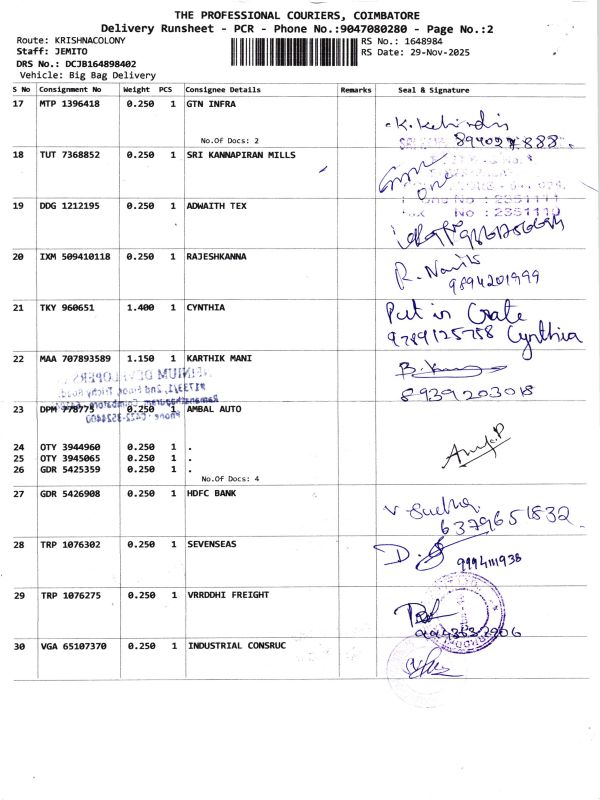 THE PROFESSIONAL COURIERS, COIMBATORE
Delivery Runsheet - PCR - Phone No.:9047080280 - Page No.:2
Route: KRISHNACOLONY
RS No.: 1648984
Staff: JEMITO
RS Date: 29-Nov-2025
DRS No.: DCJB164898402
Vehicle: Big Bag Delivery
S No Consignment No Weight PCS Consignee Details Remarks Seal & Signature
17 MTP 1396418 0.250 1 GTN INFRA
No.Of Docs: 2
18 TUT 7368852 0.250 1 SRI KANNAPIRAN MILLS
one
No : 2351110
19 DDG 1212195 0.250 1 ADWAITH TEX
20 IXM 509410118 0.250 1 RAJESHKANNA
9894201999
21 TKY 960651 1.400 1 CYNTHIA
Put in Crate
9789125758 Cynthia
22 MAA 707893589 1.150 1 KARTHIK MANI
8939203018
23 DPM 778775 0.250 1 AMBAL AUTO
24 OTY 3944960 0.250 1 .
25 OTY 3945065 0.250 1 .
26 GDR 5425359 0.250 1 .
No.Of Docs: 4
27 GDR 5426908 0.250 1 HDFC BANK
V. Sudha
6379651832
28 TRP 1076302 0.250 1 SEVENSEAS
9994111938
29 TRP 1076275 0.250 1 VRRDDHI FREIGHT
30 VGA 65107370 0.250 1 INDUSTRIAL CONSRUC